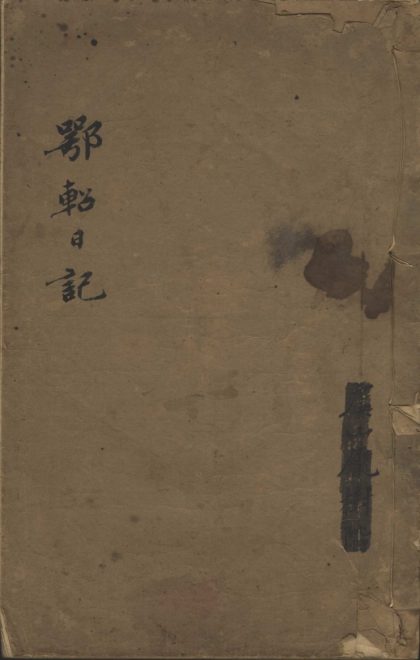 鄂軺日記